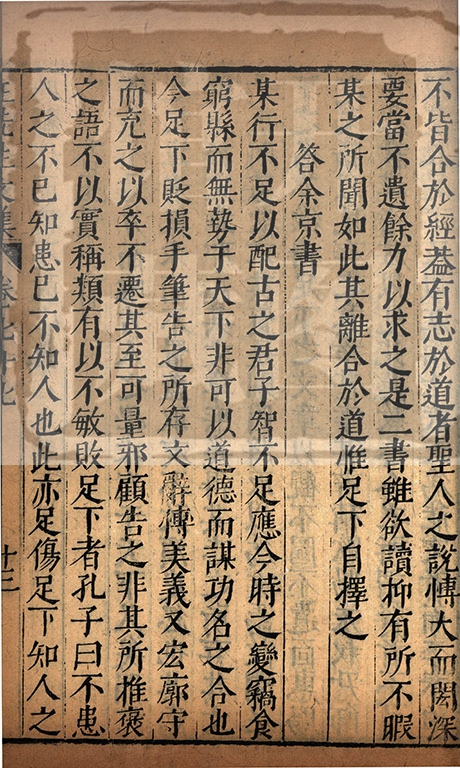 不皆合於經葢有志於道者聖人之說慱大而閎深
要當不遺餘力以求之是二書雖欲讀抑有所不暇
某之所聞如此其離合於道惟足下自擇之
答余京書
某行不足以配古之君子智不足應今時之變竊食
窮縣而無勢于天下非可以道德而謀功名之合也
今足下貶損手筆告之所存文辭慱美義又宏廓守
而充之以卒不遷其至可量邪顧告之非其所推褒
之語不以實稱類有以不敏敗足下者孔子曰不患
人之不巳知患巳不知人也此亦足傷足下知人之
王先生文集
卷七十七
十二